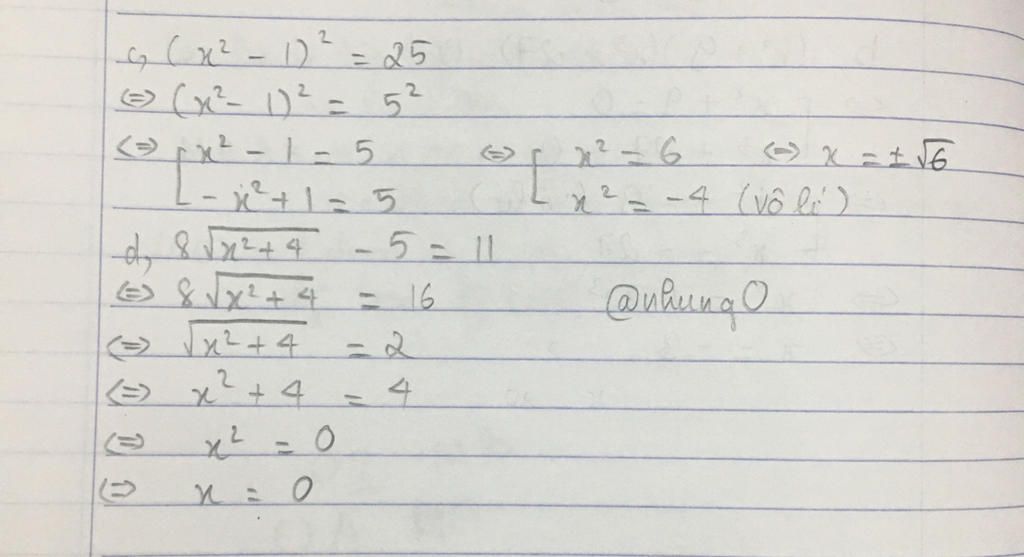 c, (x² - 1)² = 25
⇔ (x² - 1)² = 5²
⇔ [ x² - 1 = 5 ⇔ [ x² = 6 ⇔ x = ±√6
- x² + 1 = 5 x² = -4 (vô lí)
d, 8√(x² + 4) - 5 = 11
⇔ 8√(x² + 4) = 16 @nhung0
⇔ √(x² + 4) = 2
⇔ x² + 4 = 4
⇔ x² = 0
⇔ x = 0